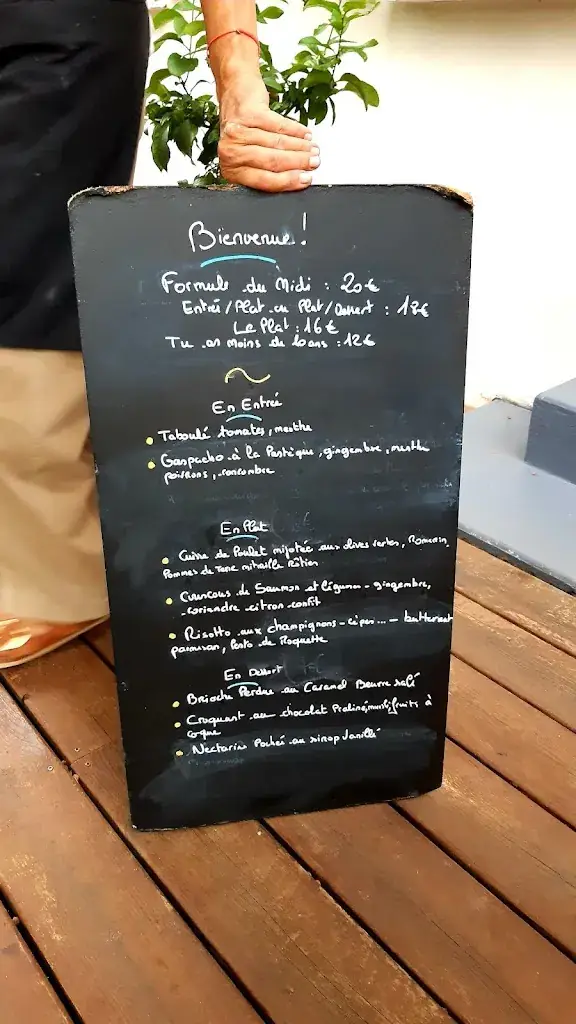 Bienvenue!
Formule du Midi : 20€
Entrée/Plat ou Plat/Dessert : 18€
Le Plat : 16€
Tu as moins de 10 ans : 12€
En Entrée
Taboulé tomates, menthe
Gaspacho à la Pastèque, gingembre, menthe
poivrons, concombre
En Plat
Cuisse de Poulet mijotée aux olives vertes, Romarin,
Pommes de Terre mitraille Rôties
Couscous de Saumon et légumes - gingembre,
coriandre citron confit
Risotto aux champignons - cèpes... - butternut
parmesan, Pesto de Roquette
En Dessert
Brioche Perdue au Caramel Beurre salé
Croquant au chocolat Praliné, fruits à
coque
Nectarine Pochée au sirop Vanillé